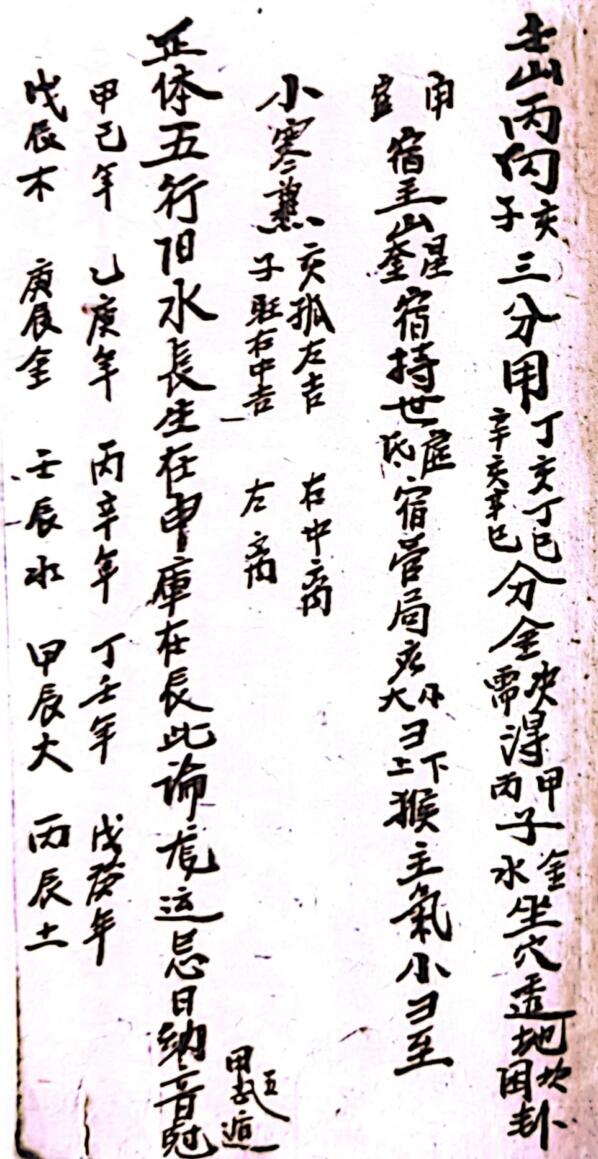 壬山丙向亥子三分用丁亥丁巳辛亥辛巳分金得甲子金丙子水坐穴透地困卦
宿主山星奎宿持世宿管局下土猴主氣小至
小寒 亥孤左吉 右中离
子旺右中吉 左离
正体五行旧水長生在申庫在長此論运忌日納音
甲己年 乙庚年 丙辛年 丁壬年 戊癸年
戊辰木 庚辰金 壬辰水 甲辰火 丙辰土